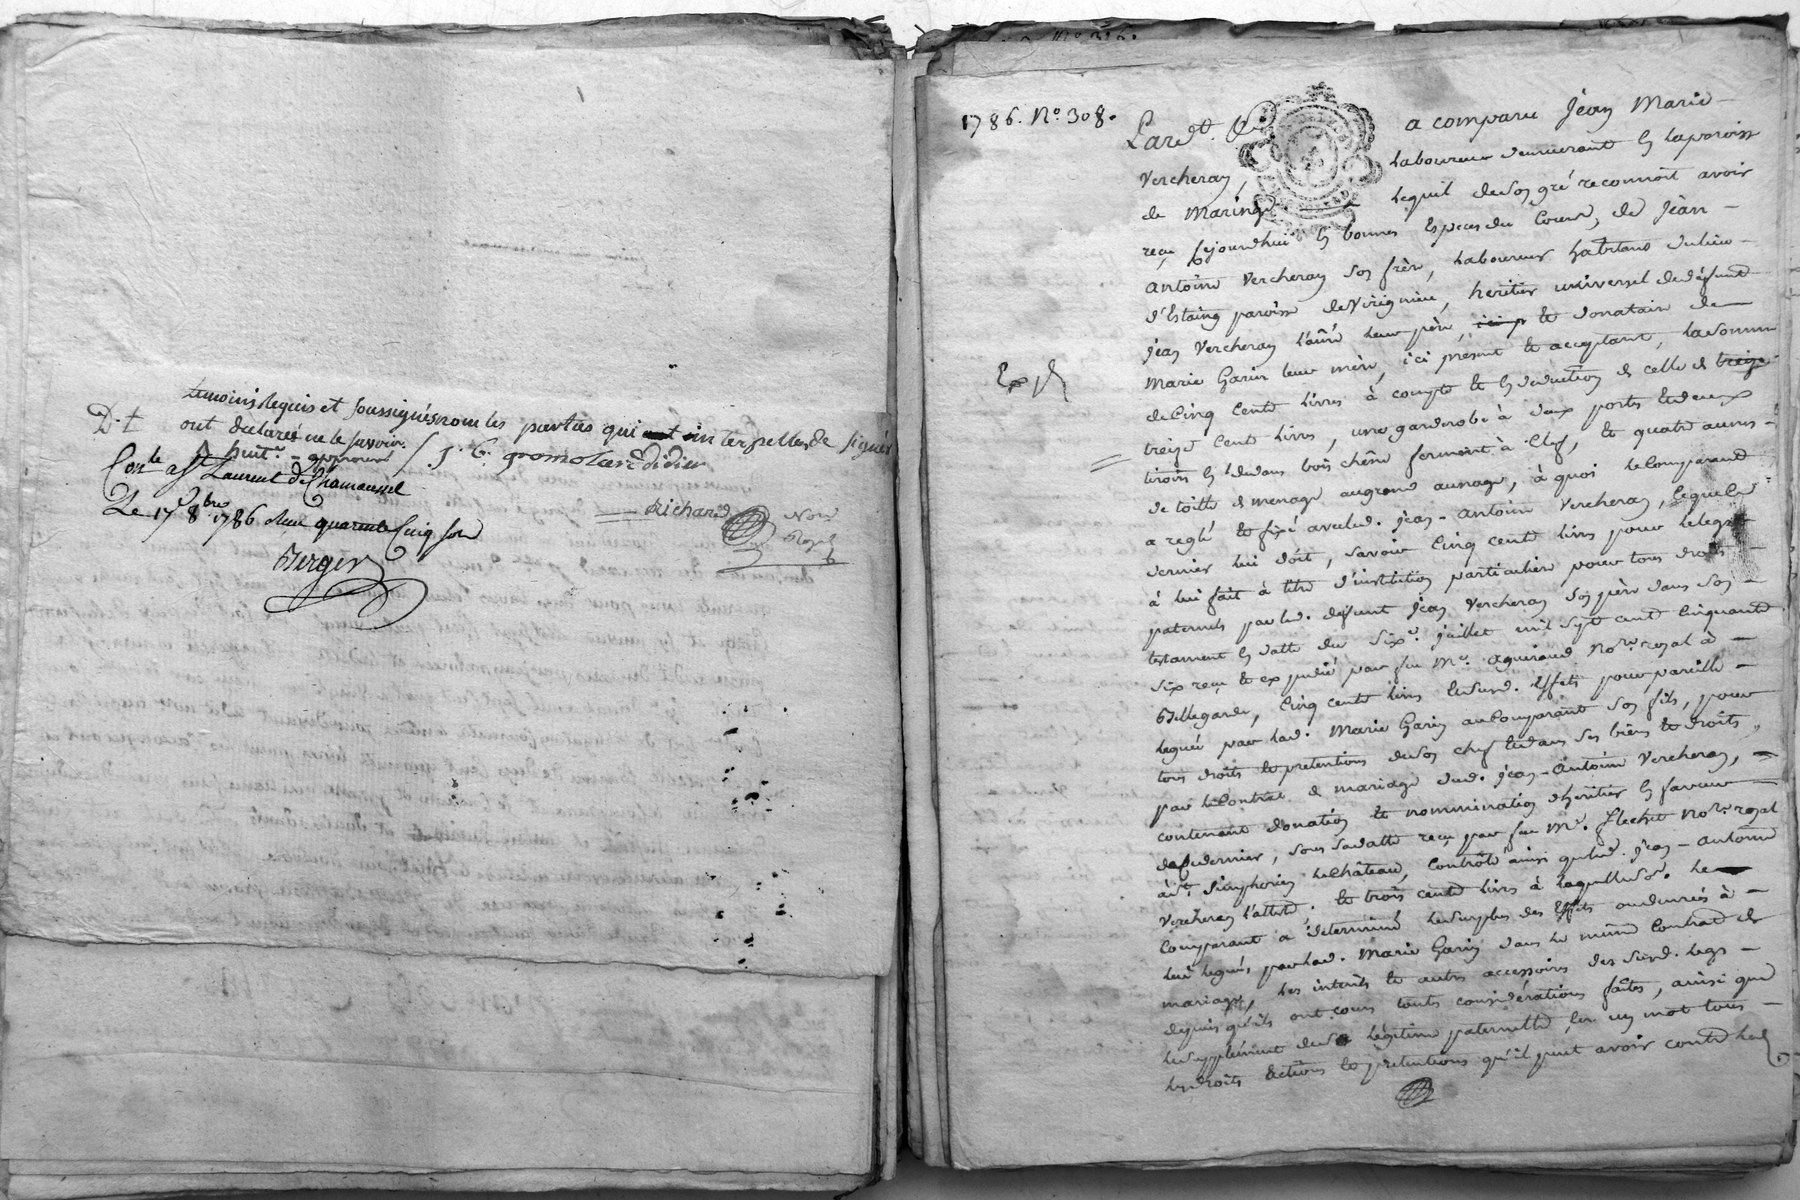 temoins requis et soussignés non les parties qui interpellées de signer
D.t ont declarés ne le savoir.
huit.e approuvé J. C. gromolard didier
Con.lé a S.t Laurent de Chamousset
Le 17 8bre 1786 Reçu quarente Cinq sous
Richard Not.re Royal
Berger
N.o 326.
1786. N.o 308.
Pard.t &c a comparu Jean Marie
Vercheray, laboureur demeurant en la paroisse
de Maringe lequel de son gré reconnoît avoir
reçu cejourdhui en bonnes Especes du Cours, de Jean
Antoine Vercheray son frere, laboureur habitant du lieu
d'Estaing paroisse de Virignieu, heritier universel de défunt
Jean Vercheray l'aîné leur père, et donataire de
Marie Garin leur mère, ici présent et acceptant, la somme
de Cinq Cents livres à compte et en déduction de celle de treize
Exp.é
treize Cents livres, une garderobe à deux portes et deux
tiroirs en dedans bois chêne fermant à Clef, et quatre aunes
de toille de menage au grand aunage, à quoi le Comparant
a reglé et fixé avec led. Jean-Antoine Vercheray, ce que ce
dernier lui doit, savoir Cinq cents livres pour le legs
à lui fait à titre d'institution particulière pour tous droits
paternels par led. défunt Jean Vercheray son père dans son
testament en datte du six.e juillet mil sept cent Cinquante
six reçu et expédié par feu M.e aguiraud No.re royal à
Bellegarde, Cinq cents livres et lesd. Effets pour pareille
leguée par lad. Marie Garin au Comparant son fils, pour
tous droits et prétentions de son chef et dans ses biens et droits,
par le Contrat de mariage dud. Jean-Antoine Vercheray,
contenant donation et nomination d'heritier en faveur
de ce dernier, sous sa datte reçu par feu M.e flechet No.re royal
à S.t Simphorien le Château, Contrôlé ainsi que led. Jean-antoine
Vercheray l'atteste, et trois cents livres à laquelle so.e le
Comparant a déterminé le surplus des Effets en denrées à
lui legués par lad. Marie Garin dans le même Contrat de
mariage, les intérêts et autres accessoires des susd. legs
depuis qu'ils ont cours toutes considérations faites, ainsi que
le supplément de sa légitime paternelle, en un mot tous
les droits actions et prétentions qu'il peut avoir contre led